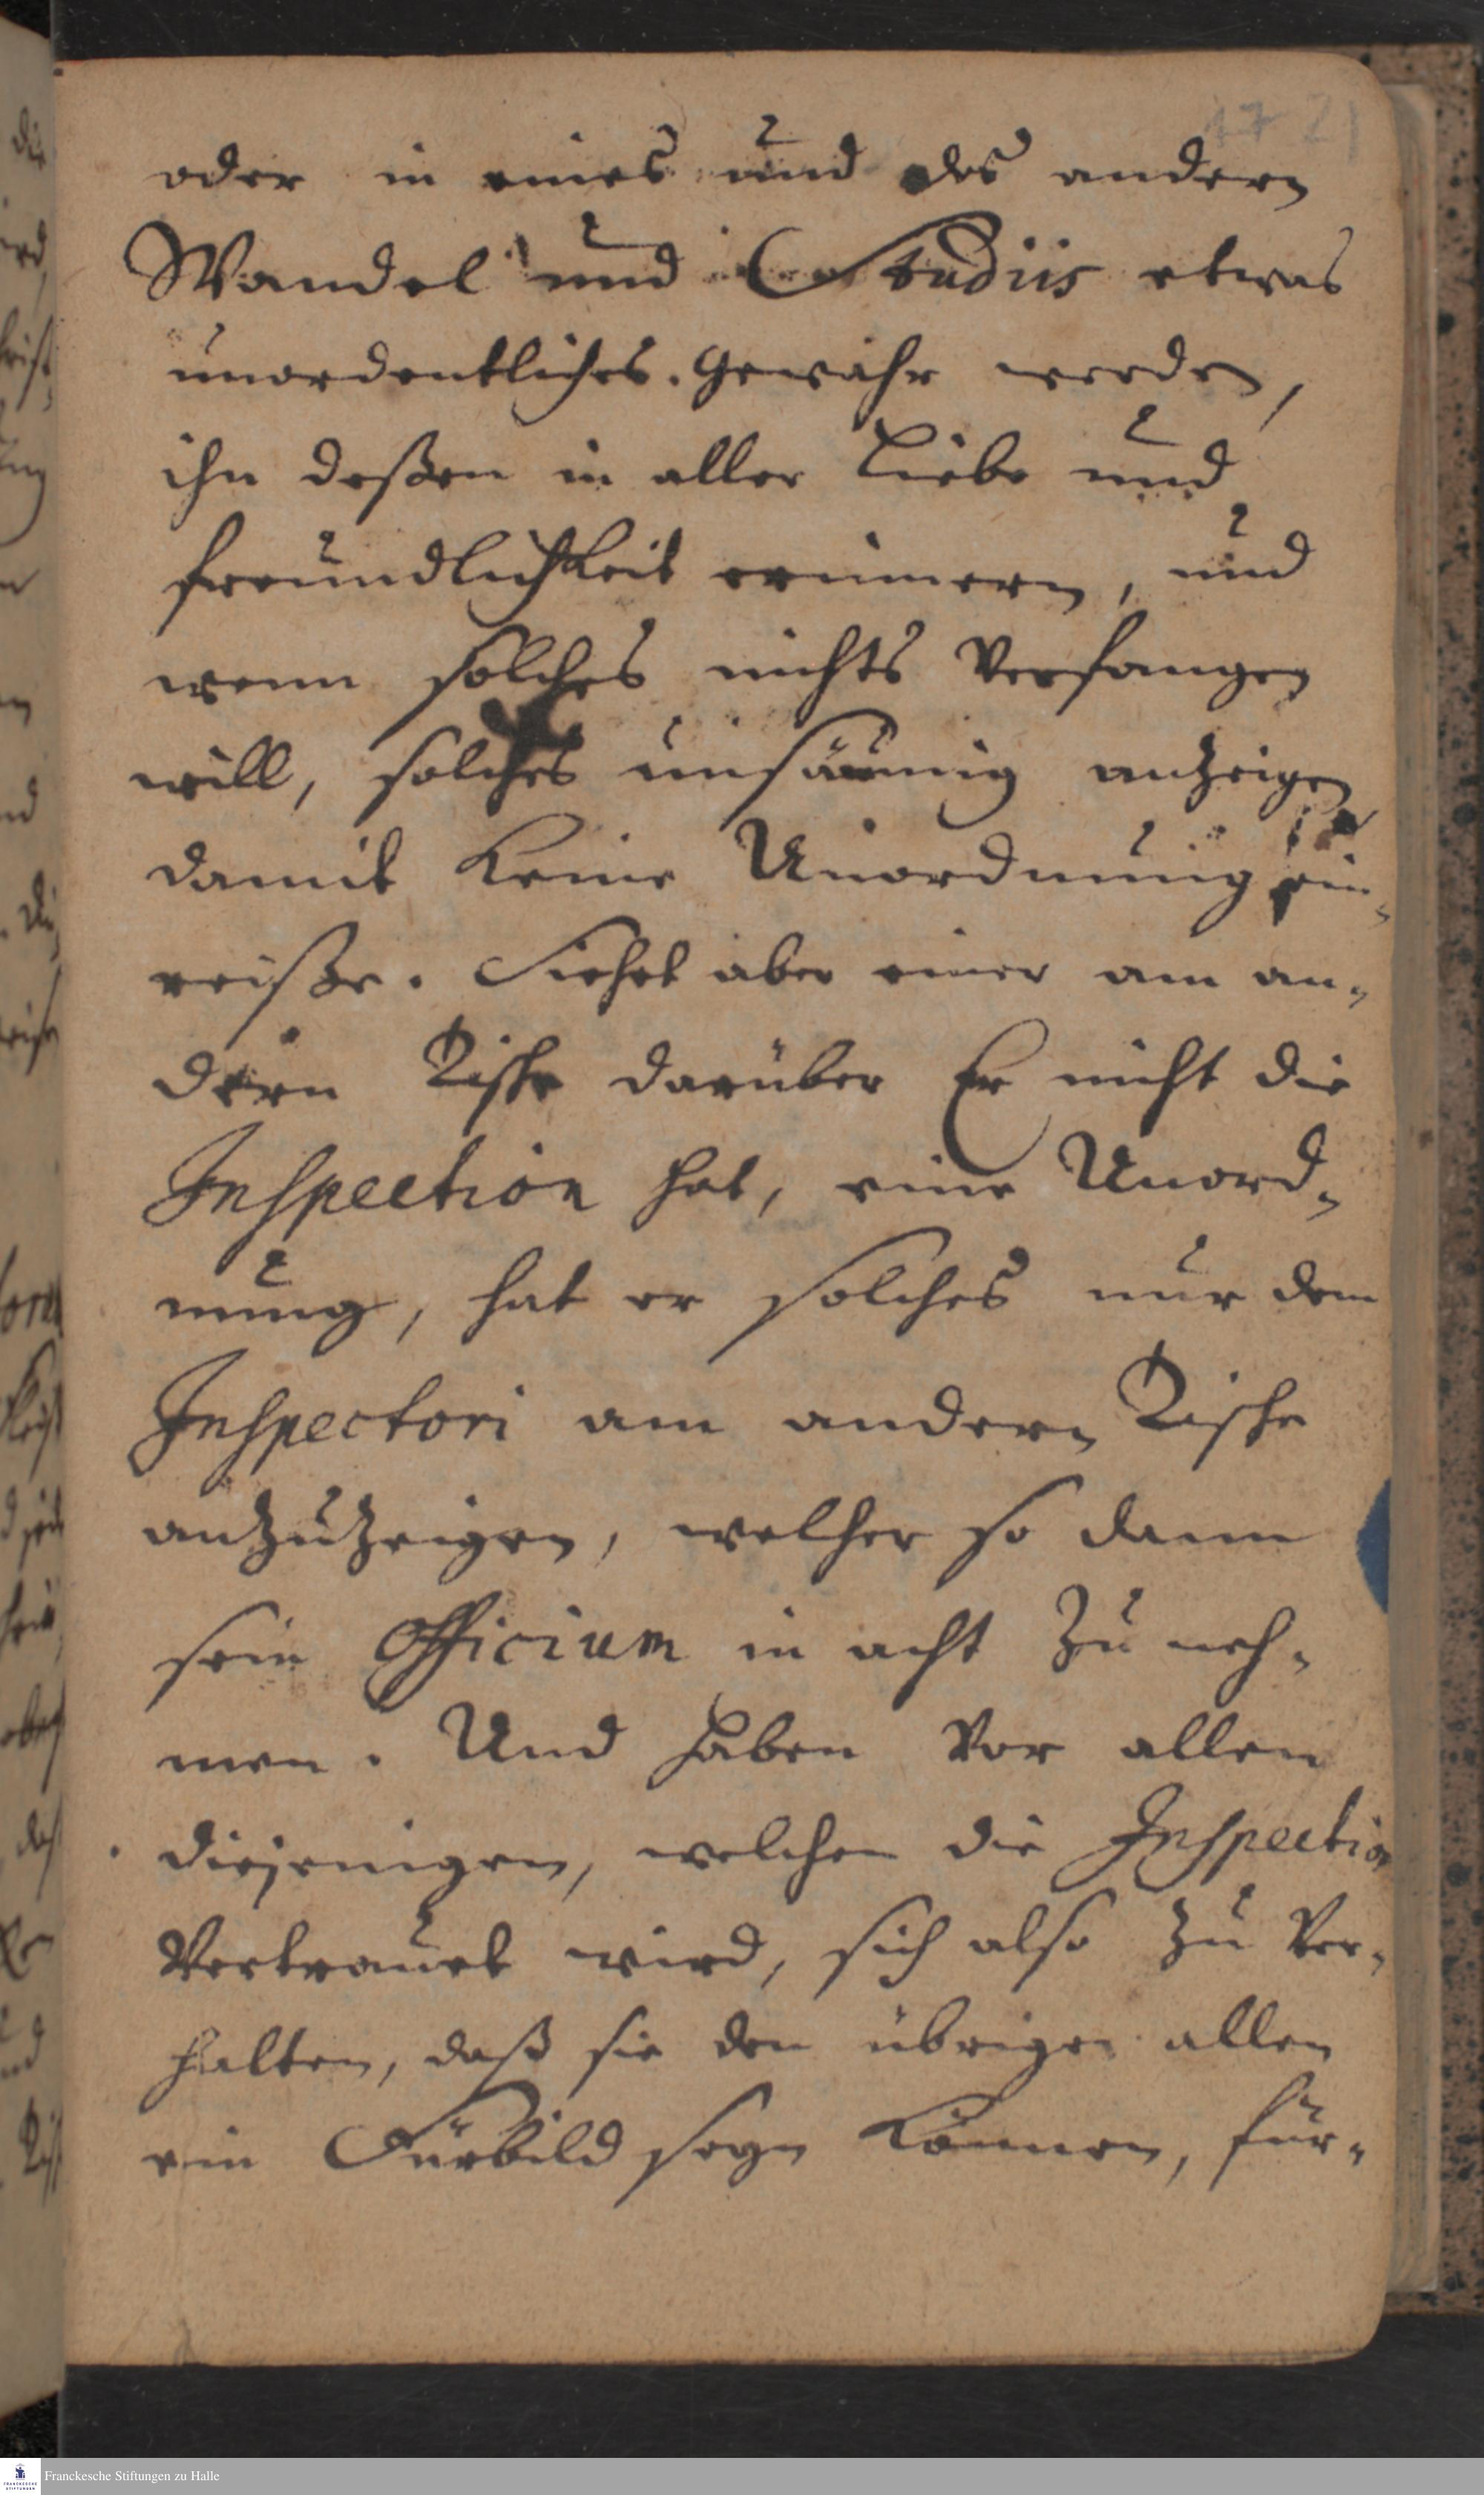 17 21
oder in eines und des andern
Wandel und Studiis etwas
unordentliches. gewahr werden,
ihn deßen in aller Liebe und
freundlichkeit erinnern, und
wenn solches nichts verfangen
will, solches unsäumig anzeigen
damit keine Unordnung ein-
reiße. Siehet aber einer am an-
dern Tische darüber Er nicht die
Inspection hat, eine Unord-
nung, hat er solches nur dem
Inspectori am andern Tische
anzuzeigen, welcher so dann
sein Officium in acht zu neh-
men. Und haben vor allen
diejenigen, welchen die Inspection
Vertrauet wird, sich also zu ver-
halten, daß sie den übrigen allen
ein Fürbild seyn können, für-
Franckesche Stiftungen zu Halle